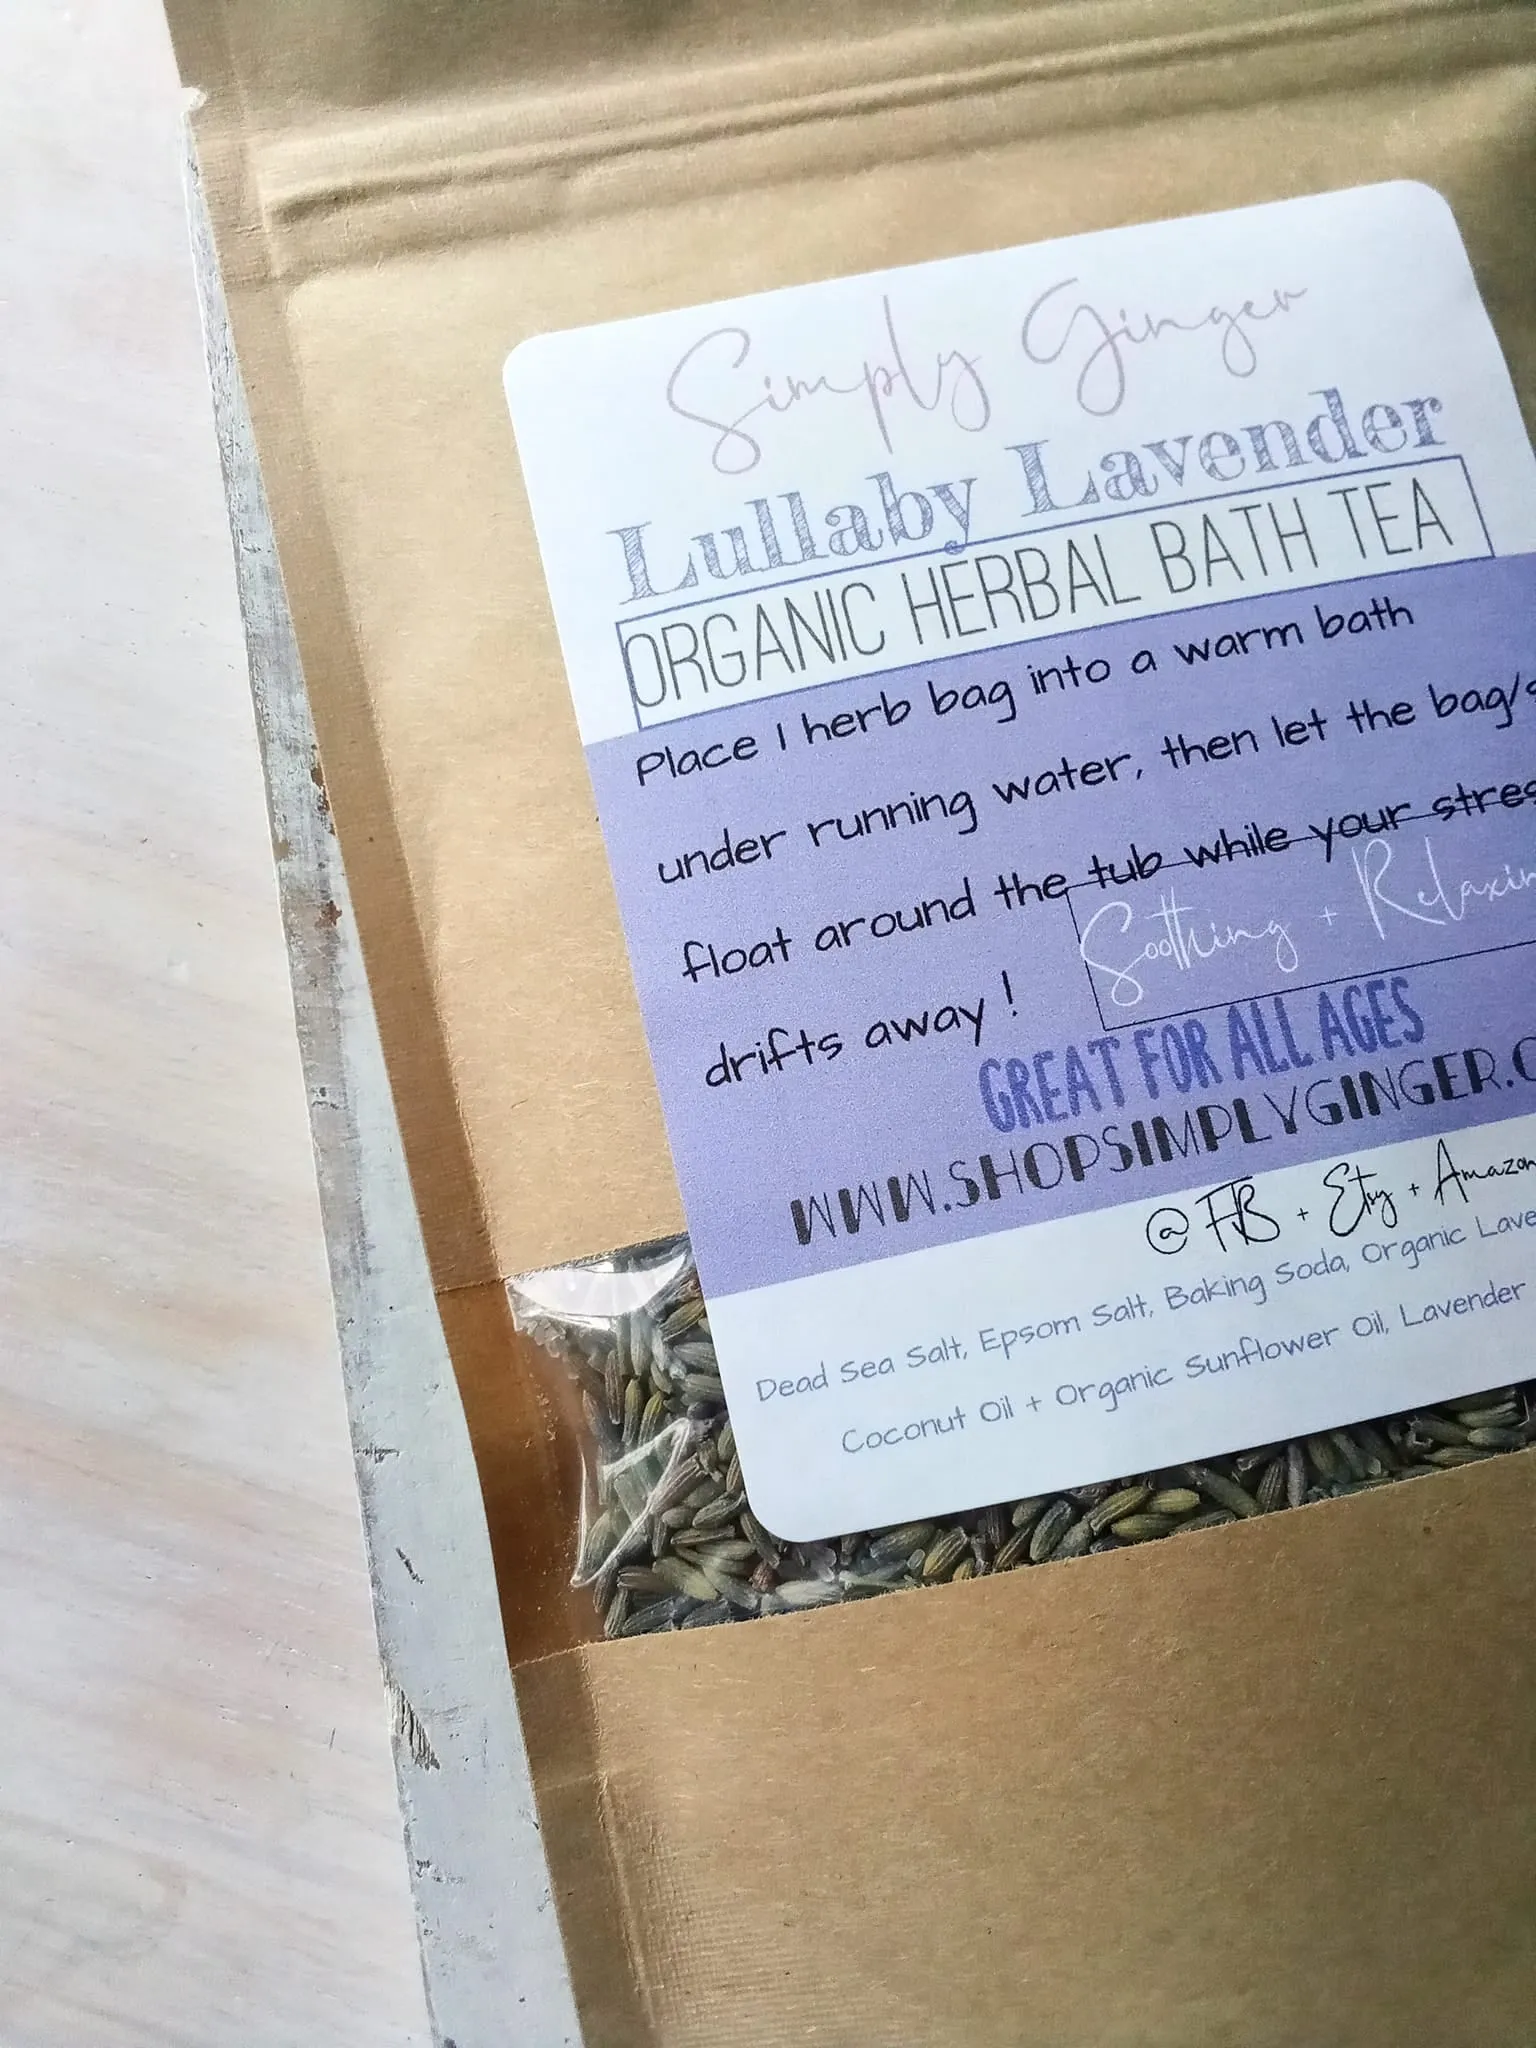 Simply Ginger
Lullaby Lavender
ORGANIC HERBAL BATH TEA
Place 1 herb bag into a warm bath
under running water, then let the bag/s
float around the tub while your stres
drifts away!
Soothing + Relaxin
GREAT FOR ALL AGES
WWW.SHOPSIMPLYGINGER.C
@ FB + Etsy + Amazon
Dead Sea Salt, Epsom Salt, Baking Soda, Organic Lave
Coconut Oil + Organic Sunflower Oil, Lavender